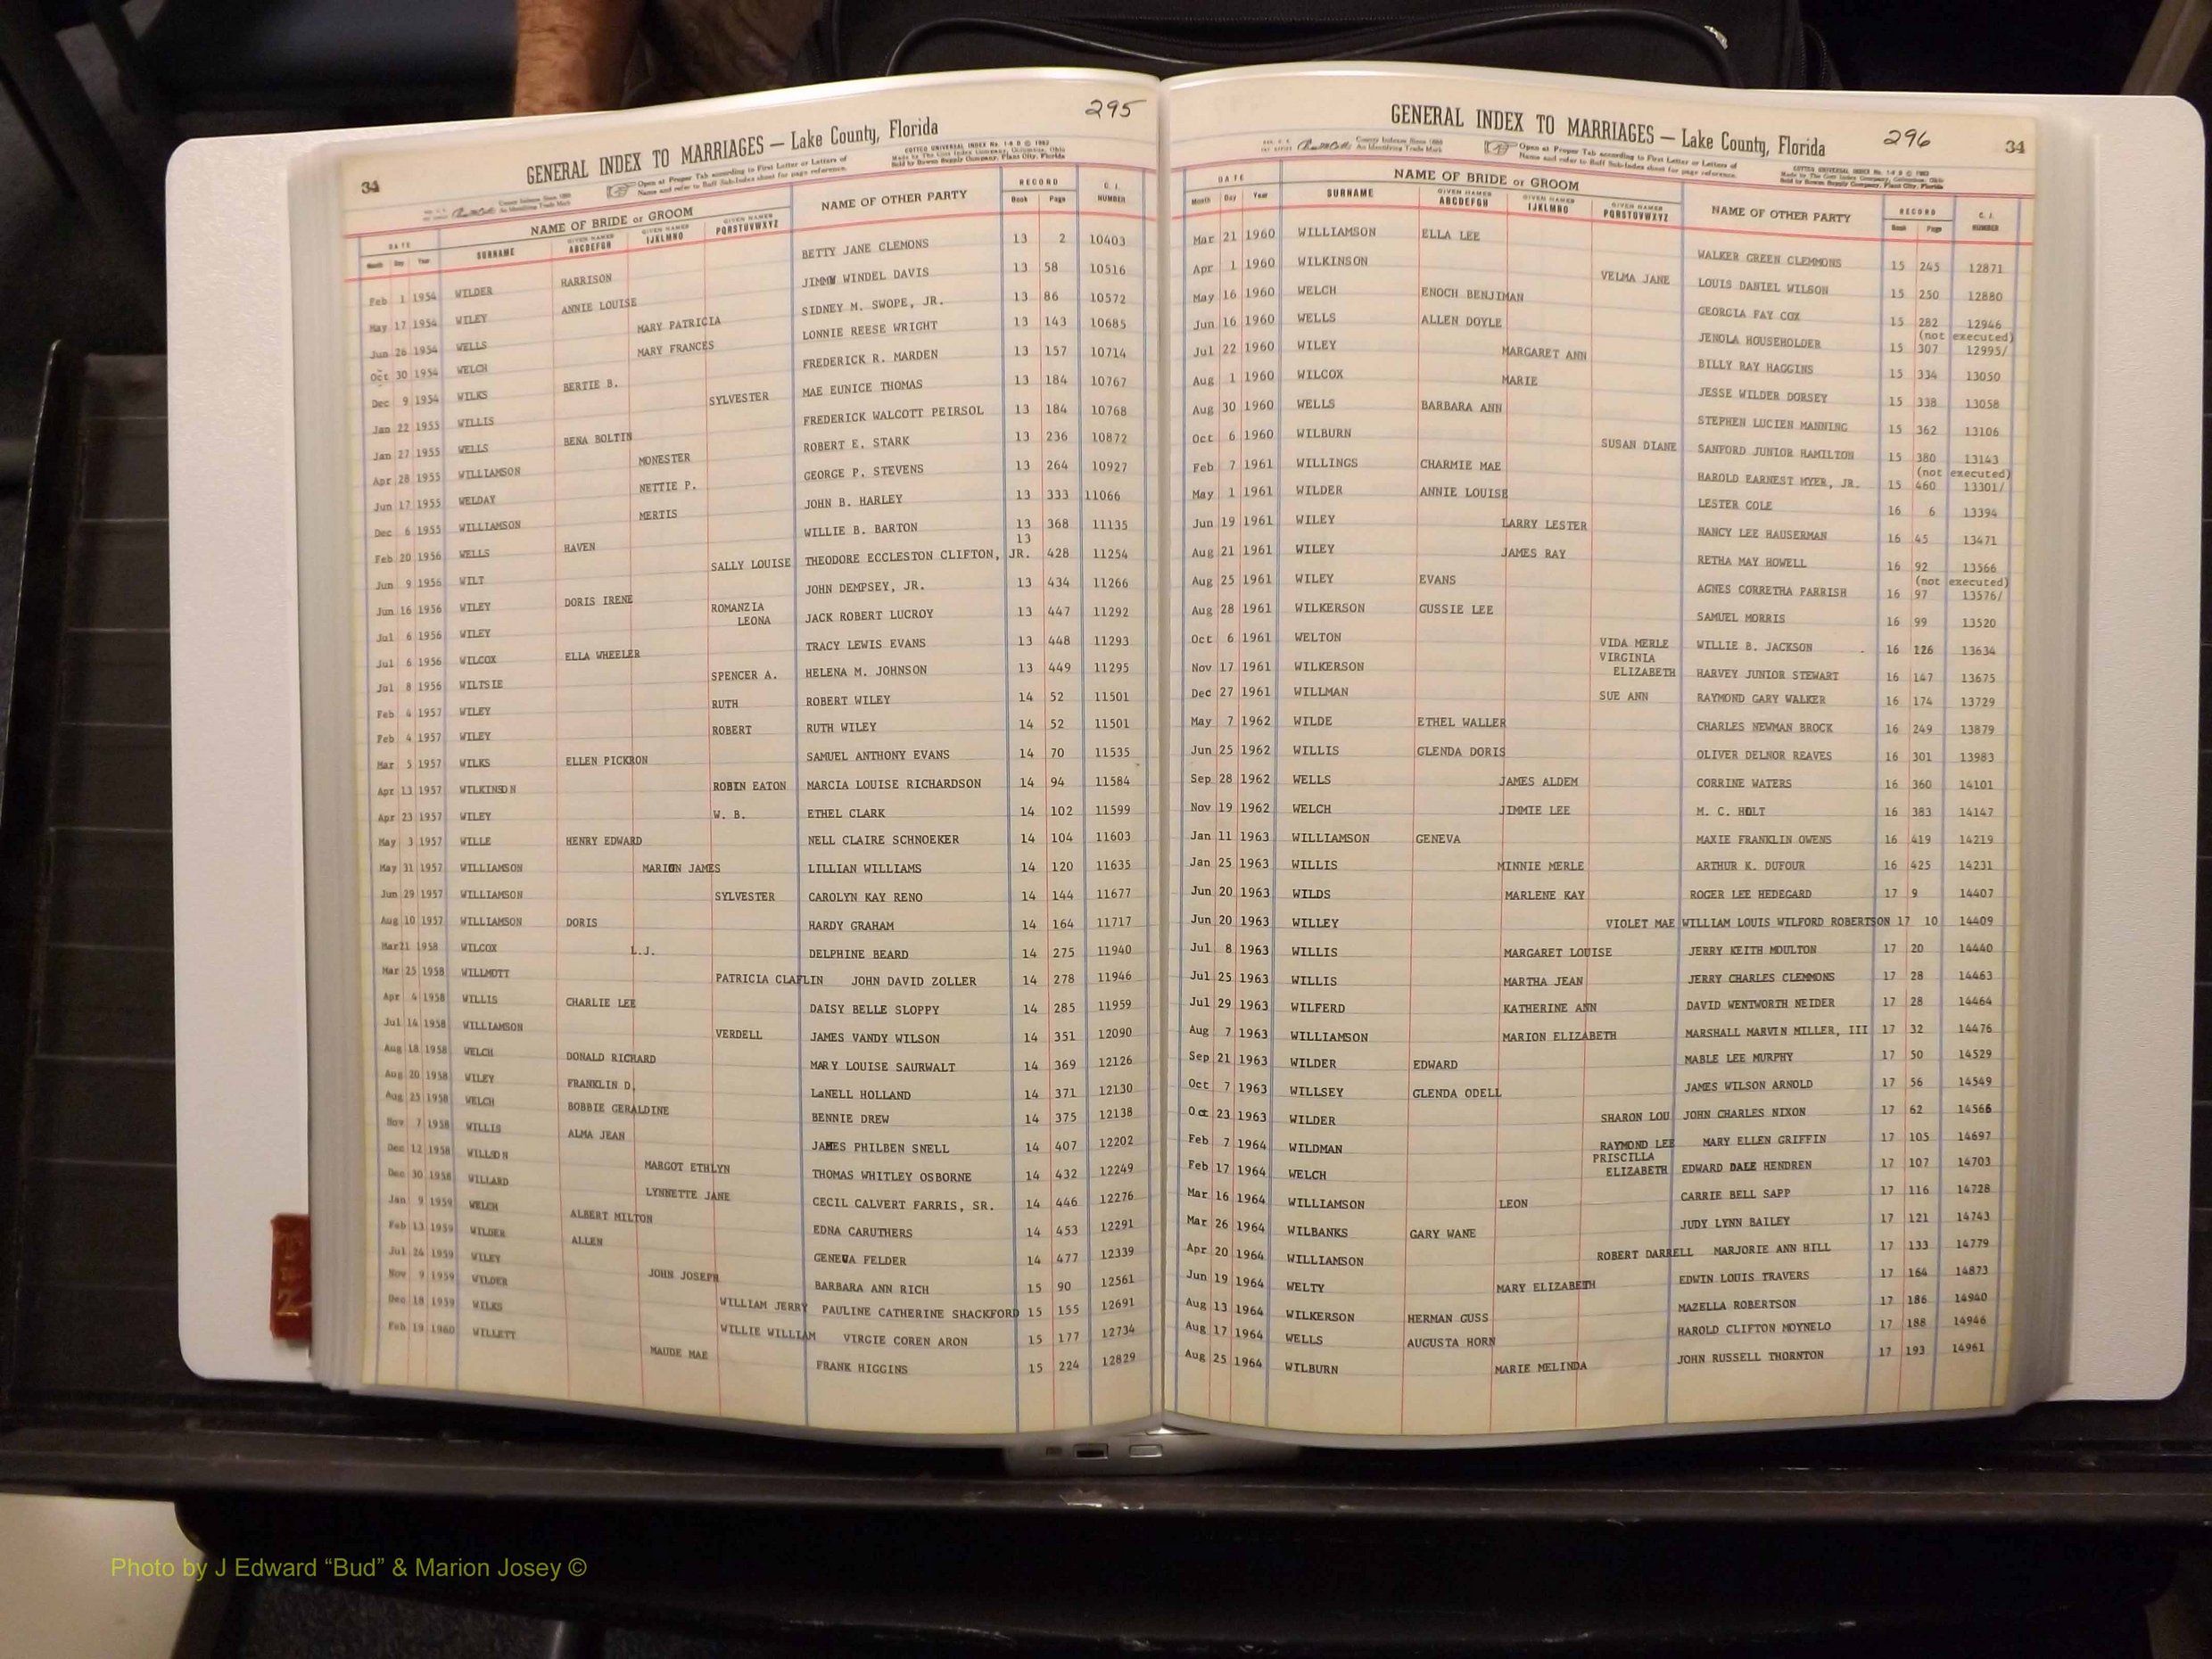 295
34
GENERAL INDEX TO MARRIAGES — Lake County, Florida
County Indexes Since 1888
An Identifying Trade Mark
Open at Proper Tab according to First Letter or Letters of
Name and refer to Buff Sub-Index sheet for page reference.
COTTCO UNIVERSAL INDEX No. 1-9 D © 1963
Made by The Cott Index Company, Columbus, Ohio
Sold by Bowen Supply Company, Plant City, Florida
DATE NAME OF BRIDE or GROOM NAME OF OTHER PARTY RECORD C. I.
Month Day Year SURNAME GIVEN NAMES ABCDEFGH GIVEN NAMES IJKLMNO GIVEN NAMES PQRSTUVWXYZ Book Page NUMBER
Feb 1 1954 WILDER HARRISON BETTY JANE CLEMONS 13 2 10403
May 17 1954 WILEY ANNIE LOUISE JIMMW WINDEL DAVIS 13 58 10516
Jun 26 1954 WELLS MARY PATRICIA SIDNEY M. SWOPE, JR. 13 86 10572
Oct 30 1954 WELCH MARY FRANCES LONNIE REESE WRIGHT 13 143 10685
Dec 9 1954 WILKS BERTIE B. FREDERICK R. MARDEN 13 157 10714
Jan 22 1955 WILLIS SYLVESTER MAE EUNICE THOMAS 13 184 10767
Jan 27 1955 WELLS BENA BOLTIN FREDERICK WALCOTT PEIRSOL 13 184 10768
Apr 28 1955 WILLIAMSON MONESTER ROBERT E. STARK 13 236 10872
Jun 17 1955 WELDAY NETTIE P. GEORGE P. STEVENS 13 264 10927
Dec 6 1955 WILLIAMSON MERTIS JOHN B. HARLEY 13 333 11066
Feb 20 1956 WELLS HAVEN WILLIE B. BARTON 13 368 11135
Jun 9 1956 WILT SALLY LOUISE THEODORE ECCLESTON CLIFTON, JR. 13 428 11254
Jun 16 1956 WILEY DORIS IRENE JOHN DEMPSEY, JR. 13 434 11266
Jul 6 1956 WILEY ROMANZIA LEONA JACK ROBERT LUCROY 13 447 11292
Jul 6 1956 WILCOX ELLA WHEELER TRACY LEWIS EVANS 13 448 11293
Jul 8 1956 WILTSIE SPENCER A. HELENA M. JOHNSON 13 449 11295
Feb 4 1957 WILEY RUTH ROBERT WILEY 14 52 11501
Feb 4 1957 WILEY ROBERT RUTH WILEY 14 52 11501
Mar 5 1957 WILKS ELLEN PICKRON SAMUEL ANTHONY EVANS 14 70 11535
Apr 13 1957 WILKINSON ROBIN EATON MARCIA LOUISE RICHARDSON 14 94 11584
Apr 23 1957 WILEY W. B. ETHEL CLARK 14 102 11599
May 3 1957 WILLE HENRY EDWARD NELL CLAIRE SCHNOEKER 14 104 11603
May 31 1957 WILLIAMSON MARION JAMES LILLIAN WILLIAMS 14 120 11635
Jun 29 1957 WILLIAMSON SYLVESTER CAROLYN KAY RENO 14 144 11677
Aug 10 1957 WILLIAMSON DORIS HARDY GRAHAM 14 164 11717
Mar 21 1958 WILCOX L.J. DELPHINE BEARD 14 275 11940
Mar 25 1958 WILLMOTT PATRICIA CLAFLIN JOHN DAVID ZOLLER 14 278 11946
Apr 4 1958 WILLIS CHARLIE LEE DAISY BELLE SLOPPY 14 285 11959
Jul 14 1958 WILLIAMSON VERDELL JAMES VANDY WILSON 14 351 12090
Aug 18 1958 WELCH DONALD RICHARD MARY LOUISE SAURWALT 14 369 12126
Aug 20 1958 WILEY FRANKLIN D. LaNELL HOLLAND 14 371 12130
Aug 25 1958 WELCH BOBBIE GERALDINE BENNIE DREW 14 375 12138
Nov 7 1958 WILLIS ALMA JEAN JAMES PHILBEN SNELL 14 407 12202
Dec 12 1958 WILLSON MARGOT ETHLYN THOMAS WHITLEY OSBORNE 14 432 12249
Dec 30 1958 WILLARD LYNNETTE JANE CECIL CALVERT FARRIS, SR. 14 446 12276
Jan 9 1959 WELCH ALBERT MILTON EDNA CARUTHERS 14 453 12291
Feb 13 1959 WILDER ALLEN GENEVA FELDER 14 477 12339
Jul 24 1959 WILEY JOHN JOSEPH BARBARA ANN RICH 15 90 12561
Nov 9 1959 WILDER WILLIAM JERRY PAULINE CATHERINE SHACKFORD 15 155 12691
Dec 18 1959 WILKS WILLIE WILLIAM VIRGIE COREN ARON 15 177 12734
Feb 19 1960 WILLETT MAUDE MAE FRANK HIGGINS 15 224 12829
296
34
GENERAL INDEX TO MARRIAGES — Lake County, Florida
County Indexes Since 1888
An Identifying Trade Mark
Open at Proper Tab according to First Letter or Letters of
Name and refer to Buff Sub-Index sheet for page reference.
COTTCO UNIVERSAL INDEX No. 1-9 D © 1963
Made by The Cott Index Company, Columbus, Ohio
Sold by Bowen Supply Company, Plant City, Florida
DATE NAME OF BRIDE or GROOM NAME OF OTHER PARTY RECORD C. I.
Month Day Year SURNAME GIVEN NAMES ABCDEFGH GIVEN NAMES IJKLMNO GIVEN NAMES PQRSTUVWXYZ Book Page NUMBER
Mar 21 1960 WILLIAMSON ELLA LEE WALKER GREEN CLEMMONS 15 245 12871
Apr 1 1960 WILKINSON VELMA JANE LOUIS DANIEL WILSON 15 250 12880
May 16 1960 WELCH ENOCH BENJIMAN GEORGIA FAY COX 15 282 12946
(not executed)
Jun 16 1960 WELLS ALLEN DOYLE JENOLA HOUSEHOLDER 15 307 12995/
Jul 22 1960 WILEY MARGARET ANN BILLY RAY HAGGINS 15 334 13050
Aug 1 1960 WILCOX MARIE JESSE WILDER DORSEY 15 338 13058
Aug 30 1960 WELLS BARBARA ANN STEPHEN LUCIEN MANNING 15 362 13106
Oct 6 1960 WILBURN SUSAN DIANE SANFORD JUNIOR HAMILTON 15 380 13143
(not executed)
Feb 7 1961 WILLINGS CHARMIE MAE HAROLD EARNEST MYER, JR. 15 460 13301/
May 1 1961 WILDER ANNIE LOUISE LESTER COLE 16 6 13394
Jun 19 1961 WILEY LARRY LESTER NANCY LEE HAUSERMAN 16 45 13471
Aug 21 1961 WILEY JAMES RAY RETHA MAY HOWELL 16 92 13566
(not executed)
Aug 25 1961 WILEY EVANS AGNES CORRETHA PARRISH 16 97 13576/
Aug 28 1961 WILKERSON GUSSIE LEE SAMUEL MORRIS 16 99 13520
Oct 6 1961 WELTON VIDA MERLE WILLIE B. JACKSON 16 126 13634
Nov 17 1961 WILKERSON VIRGINIA ELIZABETH HARVEY JUNIOR STEWART 16 147 13675
Dec 27 1961 WILLMAN SUE ANN RAYMOND GARY WALKER 16 174 13729
May 7 1962 WILDE ETHEL WALLER CHARLES NEWMAN BROCK 16 249 13879
Jun 25 1962 WILLIS GLENDA DORIS OLIVER DELNOR REAVES 16 301 13983
Sep 28 1962 WELLS JAMES ALDEM CORRINE WATERS 16 360 14101
Nov 19 1962 WELCH JIMMIE LEE M. C. HOLT 16 383 14147
Jan 11 1963 WILLIAMSON GENEVA MAXIE FRANKLIN OWENS 16 419 14219
Jan 25 1963 WILLIS MINNIE MERLE ARTHUR K. DUFOUR 16 425 14231
Jun 20 1963 WILDS MARLENE KAY ROGER LEE HEDEGARD 17 9 14407
Jun 20 1963 WILLEY VIOLET MAE WILLIAM LOUIS WILFORD ROBERTSON 17 10 14409
Jul 8 1963 WILLIS MARGARET LOUISE JERRY KEITH MOULTON 17 20 14440
Jul 25 1963 WILLIS MARTHA JEAN JERRY CHARLES CLEMMONS 17 28 14463
Jul 29 1963 WILFERD KATHERINE ANN DAVID WENTWORTH NEIDER 17 28 14464
Aug 7 1963 WILLIAMSON MARION ELIZABETH MARSHALL MARVIN MILLER, III 17 32 14476
Sep 21 1963 WILDER EDWARD MABLE LEE MURPHY 17 50 14529
Oct 7 1963 WILLSEY GLENDA ODELL JAMES WILSON ARNOLD 17 56 14549
Oct 23 1963 WILDER SHARON LOU JOHN CHARLES NIXON 17 62 14566
Feb 7 1964 WILDMAN RAYMOND LEE MARY ELLEN GRIFFIN 17 105 14697
Feb 17 1964 WELCH PRISCILLA ELIZABETH EDWARD DALE HENDREN 17 107 14703
Mar 16 1964 WILLIAMSON LEON CARRIE BELL SAPP 17 116 14728
Mar 26 1964 WILBANKS GARY WANE JUDY LYNN BAILEY 17 121 14743
Apr 20 1964 WILLIAMSON ROBERT DARRELL MARJORIE ANN HILL 17 133 14779
Jun 19 1964 WELTY MARY ELIZABETH EDWIN LOUIS TRAVERS 17 164 14873
Aug 13 1964 WILKERSON HERMAN GUSS MAZELLA ROBERTSON 17 186 14940
Aug 17 1964 WELLS AUGUSTA HORN HAROLD CLIFTON MOYNELO 17 188 14946
Aug 25 1964 WILBURN MARIE MELINDA JOHN RUSSELL THORNTON 17 193 14961
Photo by J Edward “Bud” & Marion Josey ©